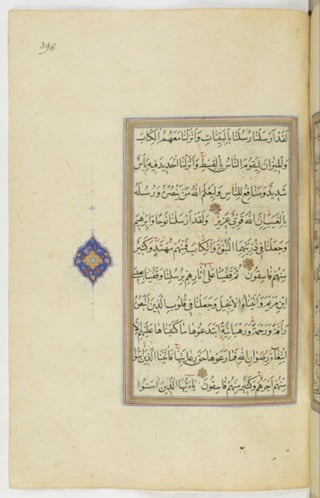 396
لَقَدْ أَرْسَلْنَا رُسُلَنَا بِالْبَيِّنَاتِ وَأَنْزَلْنَا مَعَهُمُ الْكِتَابَ
وَالْمِيزَانَ لِيَقُومَ النَّاسُ بِالْقِسْطِ وَأَنْزَلْنَا الْحَدِيدَ فِيهِ بَأْسٌ
شَدِيدٌ وَمَنَافِعُ لِلنَّاسِ وَلِيَعْلَمَ اللَّهُ مَنْ يَنْصُرُهُ وَرُسُلَهُ
بِالْغَيْبِ إِنَّ اللَّهَ قَوِيٌّ عَزِيزٌ وَلَقَدْ أَرْسَلْنَا نُوحًا وَإِبْرَهِيمَ
وَجَعَلْنَا فِي ذُرِّيَّتِهِمَا النُّبُوَّةَ وَالْكِتَابَ فَمِنْهُمْ مُهْتَدٍ وَكَثِيرٌ
مِنْهُمْ فَاسِقُونَ ثُمَّ قَفَّيْنَا عَلَى آثَارِهِمْ بِرُسُلِنَا وَقَفَّيْنَا بِعِيسَى
ابْنِ مَرْيَمَ وَآتَيْنَاهُ الْإِنْجِيلَ وَجَعَلْنَا فِي قُلُوبِ الَّذِينَ اتَّبَعُوهُ
رَأْفَةً وَرَحْمَةً وَرَهْبَانِيَّةً ابْتَدَعُوهَا مَا كَتَبْنَاهَا عَلَيْهِمْ إِلَّا
ابْتِغَاءَ رِضْوَانِ اللَّهِ فَمَا رَعَوْهَا حَقَّ رِعَايَتِهَا فَآتَيْنَا الَّذِينَ آمَنُوا
مِنْهُمْ أَجْرَهُمْ وَكَثِيرٌ مِنْهُمْ فَاسِقُونَ يَا أَيُّهَا الَّذِينَ آمَنُوا